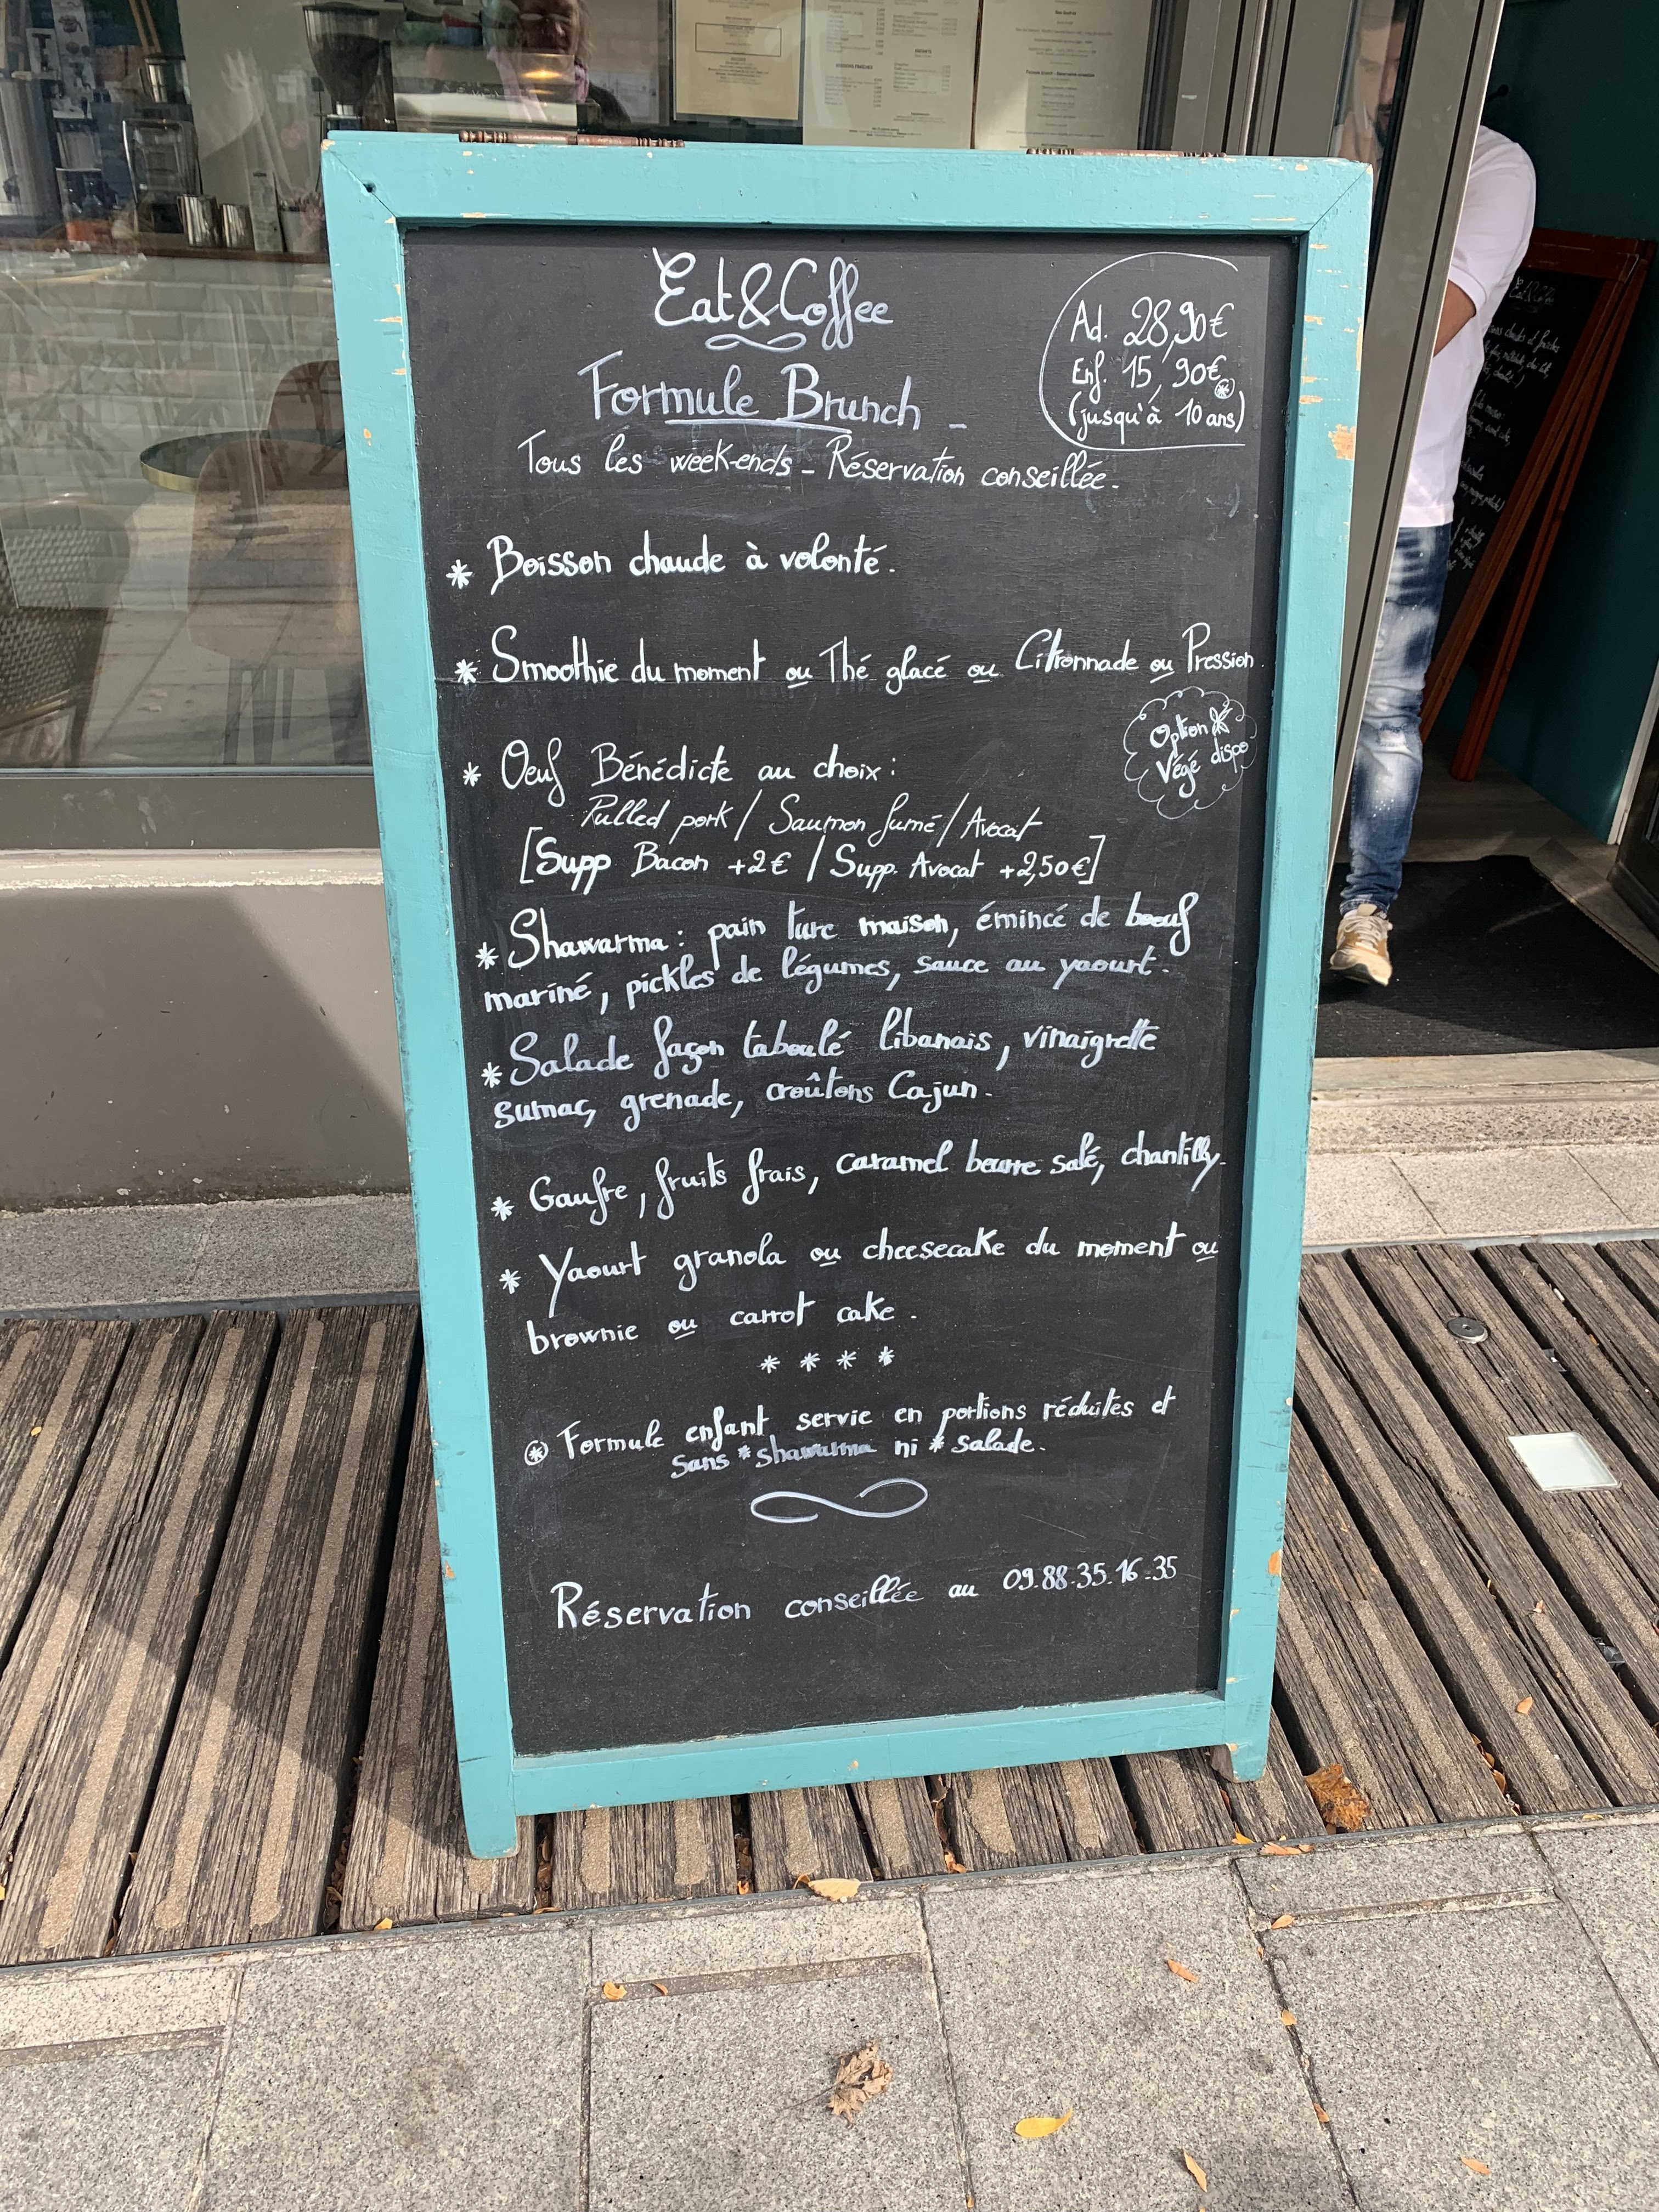 Eat & Coffee
Formule Brunch -
Ad. 28,90€
Enf. 15,90€ *
(jusqu'à 10 ans)
Tous les week-ends - Réservation conseillée.
* Boisson chaude à volonté.
* Smoothie du moment ou Thé glacé ou Citronnade ou Pression.
Option
Végé dispo
* Oeuf Bénédicte au choix :
Pulled pork / Saumon fumé / Avocat
[Supp Bacon +2€ / Supp. Avocat +2,50€]
* Shawarma : pain turc maison, émincé de boeuf
mariné, pickles de légumes, sauce au yaourt.
* Salade façon taboulé libanais, vinaigrette
sumac, grenade, croûtons Cajun.
* Gaufre, fruits frais, caramel beurre salé, chantilly.
* Yaourt granola ou cheesecake du moment ou
brownie ou carrot cake.
* * * *
* Formule enfant servie en portions réduites et
sans * shawarma ni * salade.
Réservation conseillée au 09.88.35.16.35